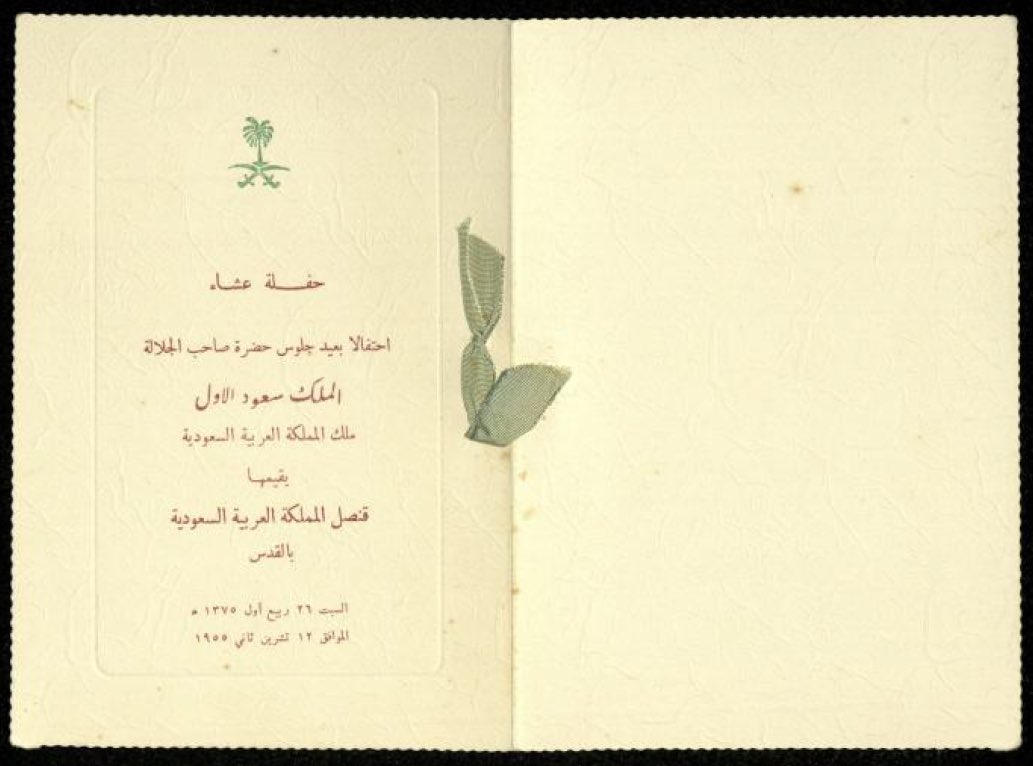 حفلة عشاء
احتفالا بعيد جلوس حضرة صاحب الجلالة
الملك سعود الاول
ملك المملكة العربية السعودية
يقيمها
قنصل المملكة العربية السعودية
بالقدس
السبت ٢٦ ربيع أول ١٣٧٥ ه
الموافق ١٢ تشرين ثاني ١٩٥٥